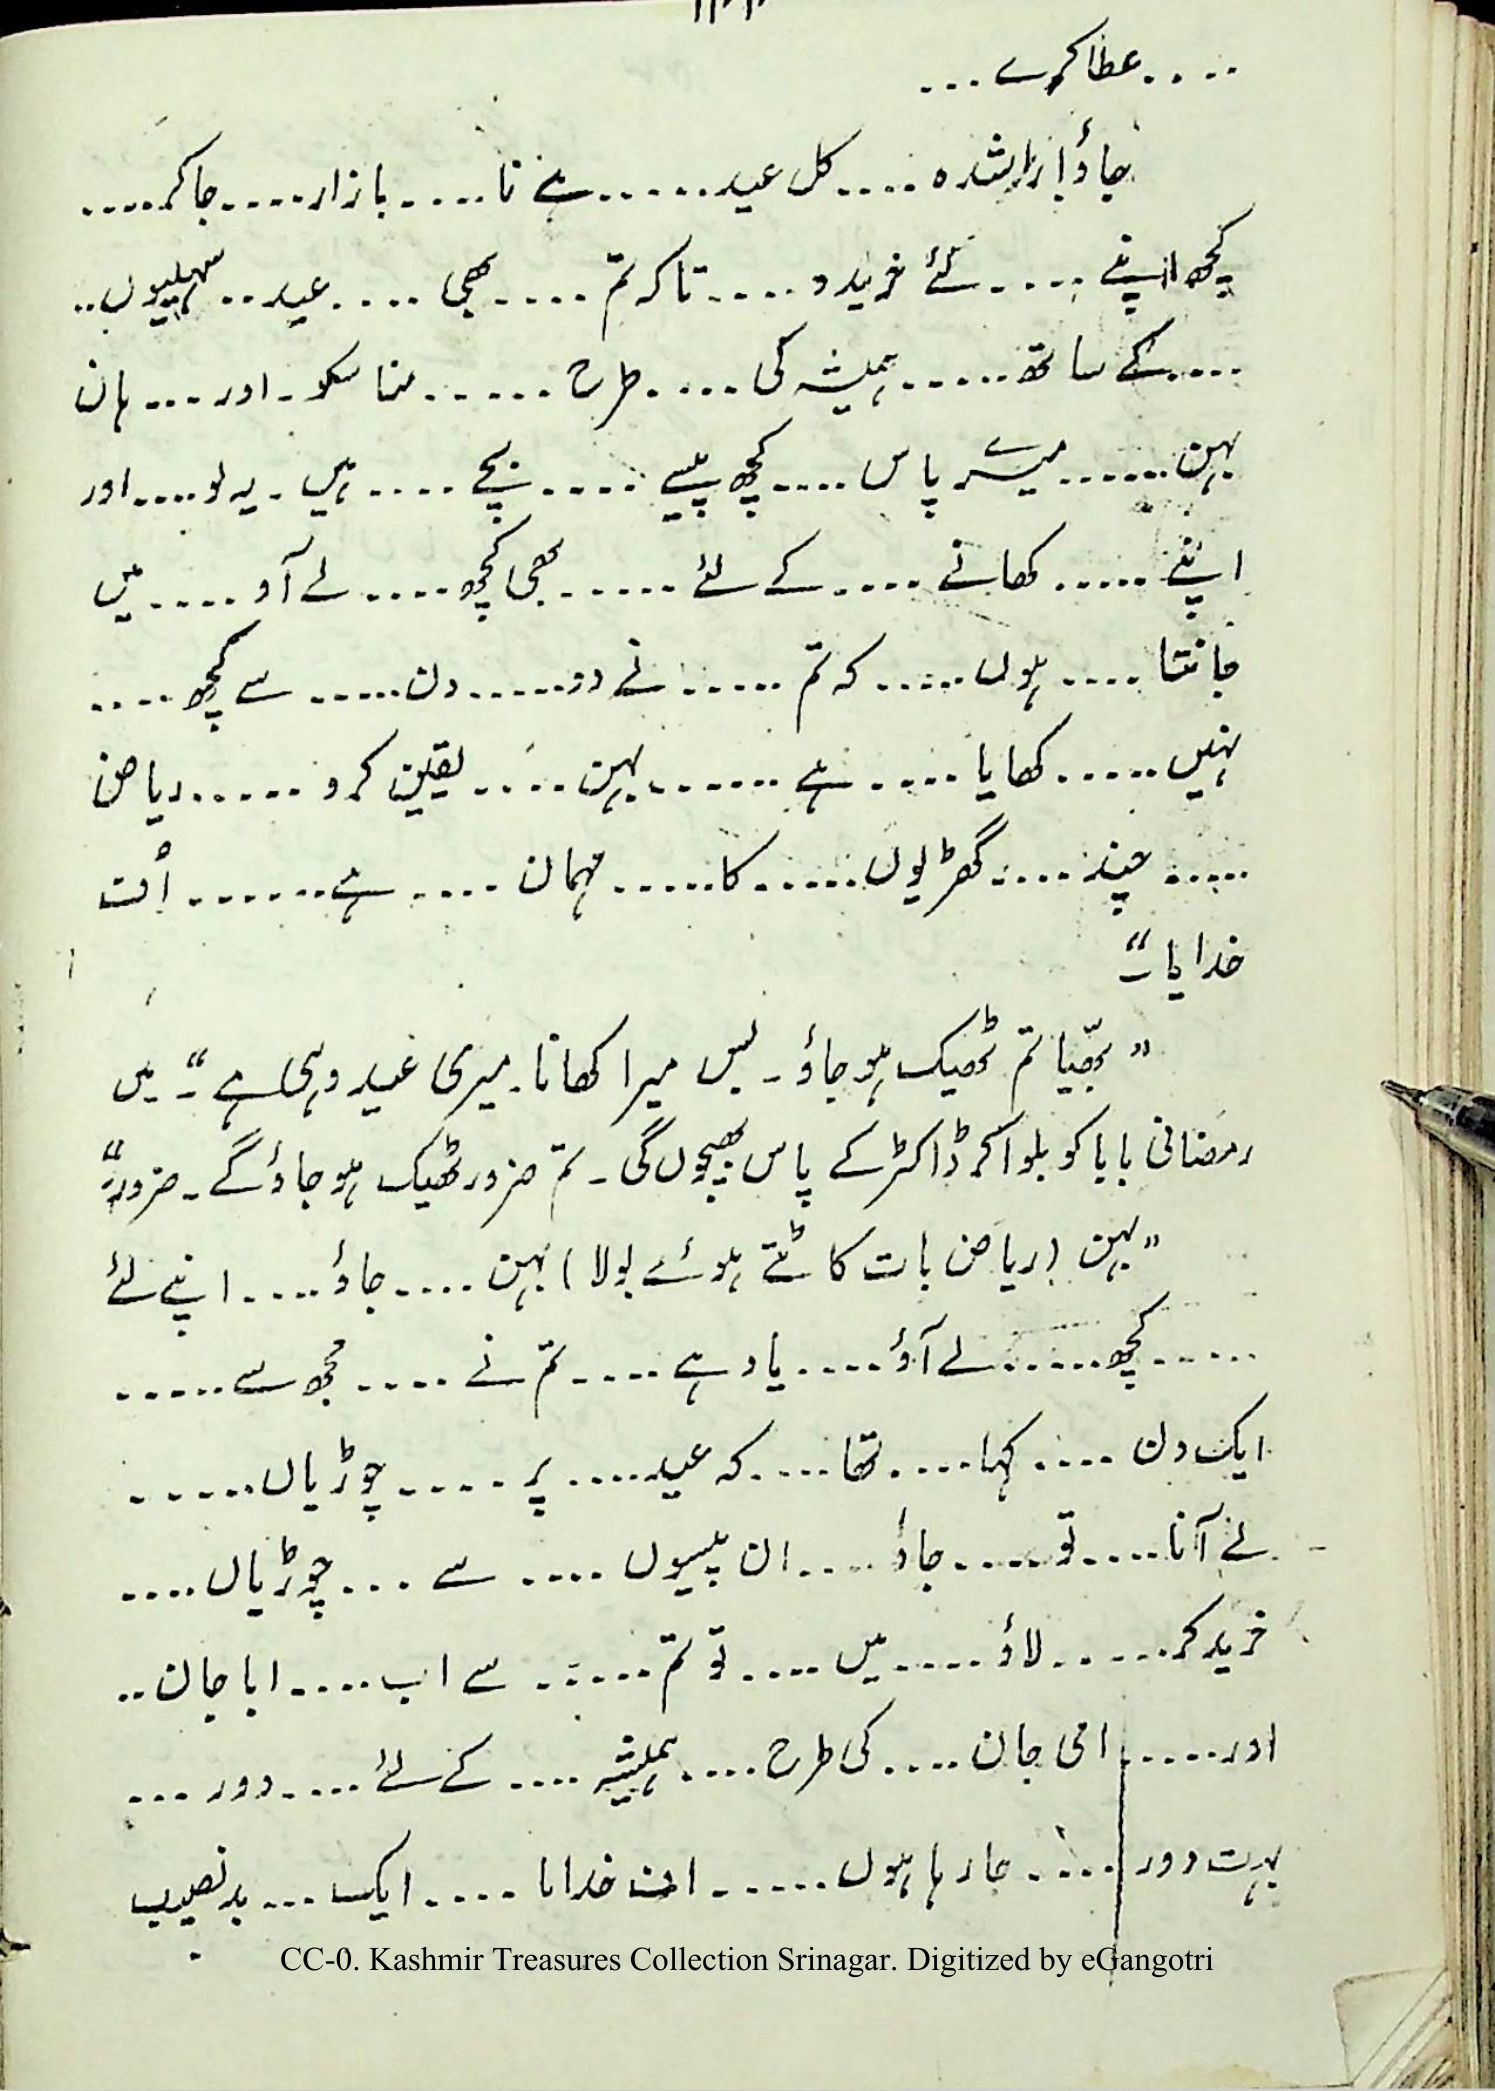 ....عطا کرے...
جاؤ! راشدہ....کل عید.....ہے نا....بازار....جاکر....
کچھ اپنے....لئے خریدو....تاکہ تم....بھی....عید..سہیلیوں..
....کے ساتھ.....ہمیشہ کی....طرح.....منا سکو۔اور...ہاں
بہن.....میرے پاس....کچھ پیسے....بچے....ہیں۔یہ لو....اور
اپنے.....کھانے....کے لئے.....بھی کچھ....لے آو....میں
جانتا....ہوں.....کہ تم.....نے دو.....دن.....سے کچھ....
نہیں.....کھایا....ہے......بہن....یقین کرو.....ریاض
.....چند....گھڑیوں.....کا.....مہمان....ہے......اُف
خدایا۔“
”بھّیا تم ٹھیک ہو جاؤ۔بس میرا کھانا۔میری عید وہی ہے“۔میں
رمضانی بابا کو بلوا کر ڈاکٹر کے پاس بھیجوں گی۔تم ضرور ٹھیک ہو جاؤ گے۔ضرور۔“
”بہن (ریاض بات کاٹتے ہوئے بولا) بہن....جاؤ....اپنے لئے
.....کچھ.....لے آؤ....یاد ہے....تم نے....مجھ سے.....
ایک دن....کہا....تھا....کہ عید....پر....چوڑیاں.....
لے آنا....تو....جاؤ....ان پیسوں....سے...چوڑیاں....
خرید کر.....لاؤ....میں....تو تم.....سے اب....ابا جان..
اور.....امی جان....کی طرح....ہمیشہ....کے لئے....دور...
بہت دور....جا رہا ہوں.....اف خدایا....ایک...بدنصیب
CC-0. Kashmir Treasures Collection Srinagar. Digitized by eGangotri